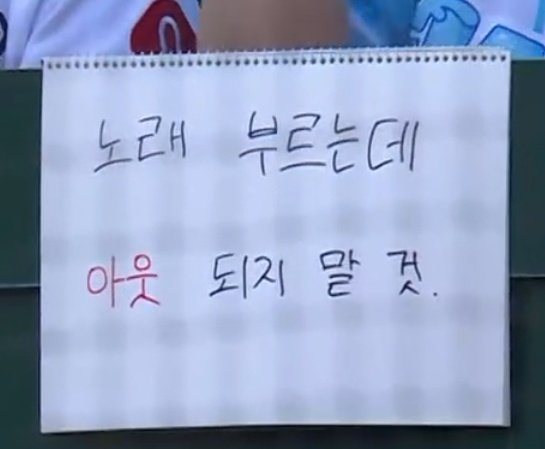 노래 부르는데
아웃 되지 말 것.